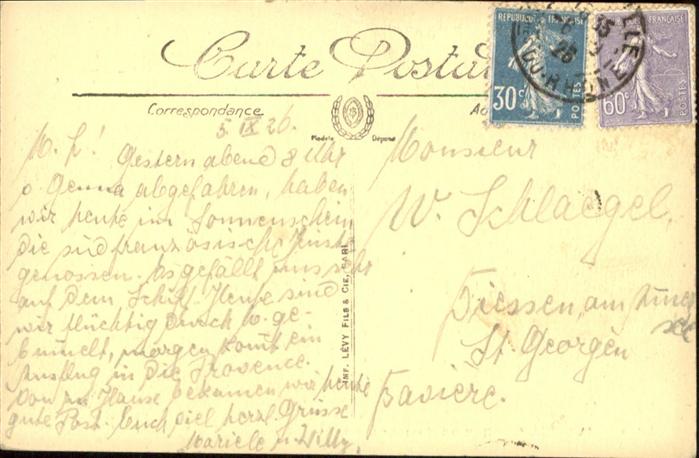 Carte Postale
Correspondance
Modèle Déposé
REPUBLIQUE FRANÇAISE
30c POSTES
FRANÇAISE
60c POSTES
5 IX 26.
M. L!
Gestern abend 8 Uhr
v Genua abgefahren, haben
wir heute im Sonnenschein
die südfranzösische Küste
genossen. Es gefällt uns sehr
auf dem Schiff. Heute sind
wir flüchtig durch M. ge-
bummelt, morgen kommt ein
Ausflug in die Provence.
Von zu Hause bekamen wir heute
gute Post. Euch viel herzl. Grüsse
Mariele u. Willy.
IMP. LÉVY FILS & CIE, PARIS
Monsieur
W. Schlaegel.
Diessen am Ammer
see
St. Georgen
Bavière.